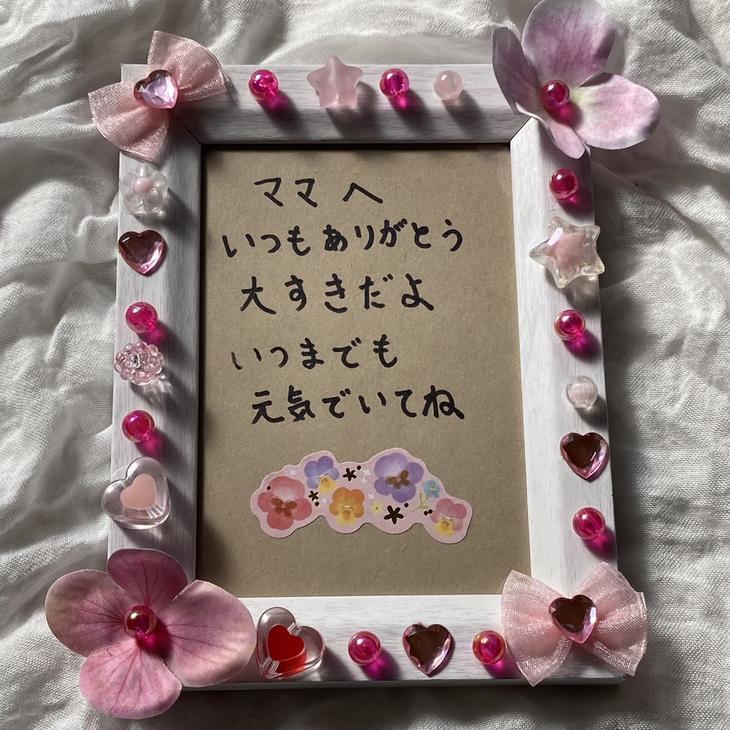 ママへ
いつもありがとう
大すきだよ
いつまでも
元気でいてね